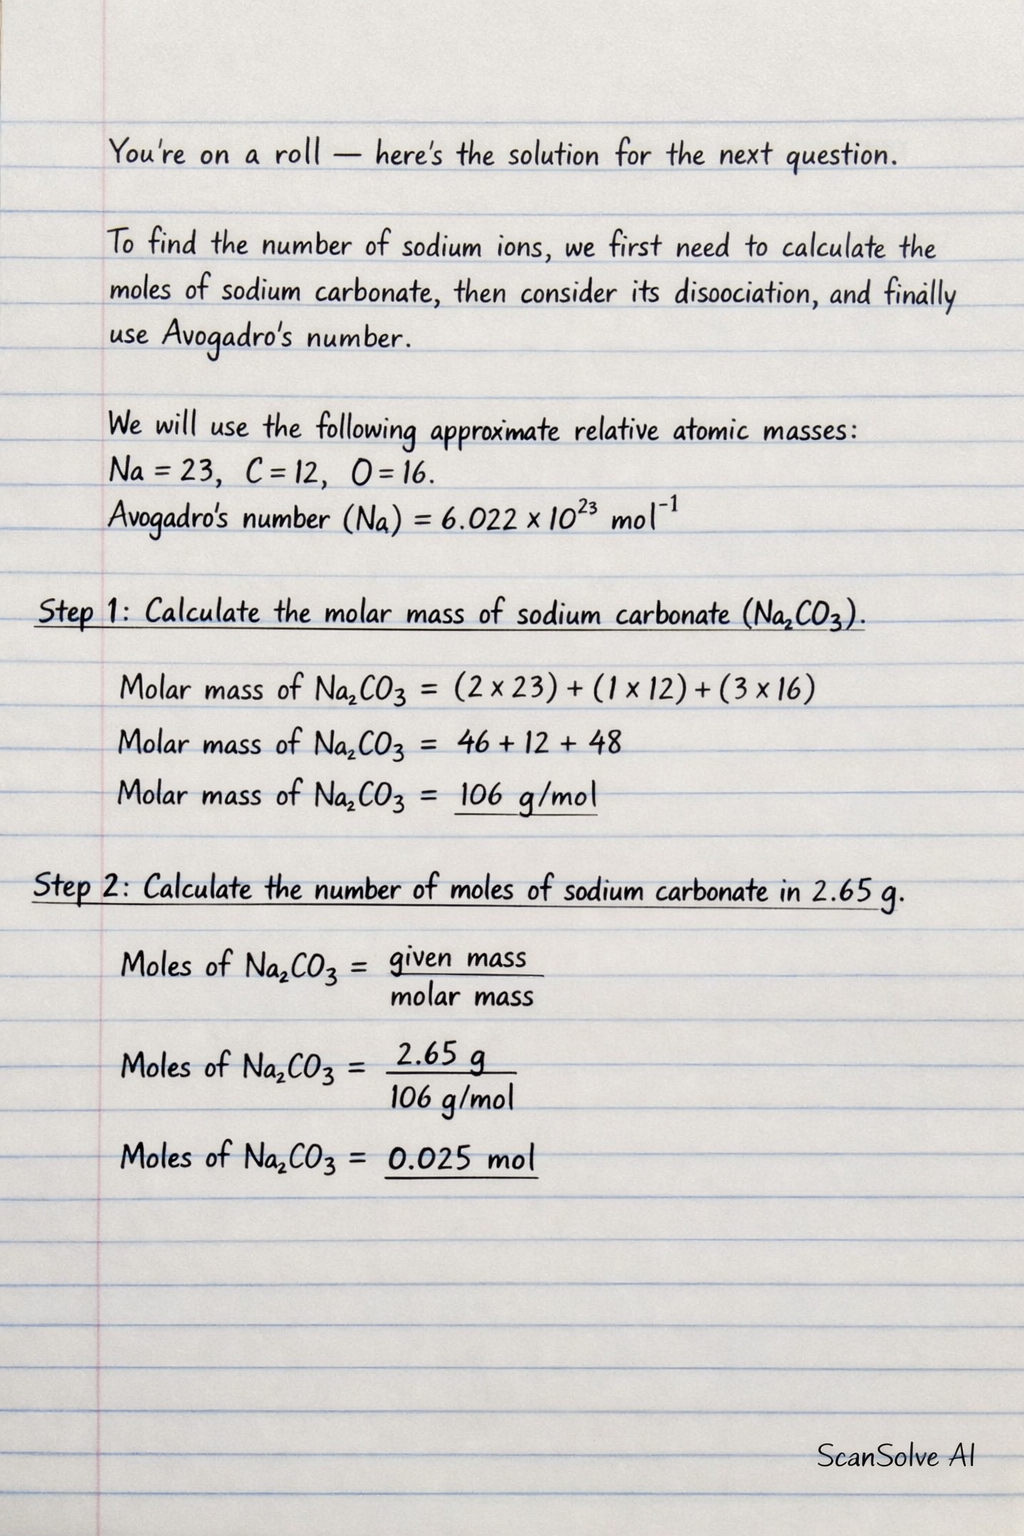 You're on a roll — here's the solution for the next question.
To find the number of sodium ions, we first need to calculate the
moles of sodium carbonate, then consider its disoociation, and finally
use Avogadro's number.
We will use the following approximate relative atomic masses:
Na = 23, C = 12, O = 16.
Avogadro's number (Na) = 6.022 × 10²³ mol⁻¹
Step 1: Calculate the molar mass of sodium carbonate (Na₂CO₃).
Molar mass of Na₂CO₃ = (2 × 23) + (1 × 12) + (3 × 16)
Molar mass of Na₂CO₃ = 46 + 12 + 48
Molar mass of Na₂CO₃ = 106 g/mol
Step 2: Calculate the number of moles of sodium carbonate in 2.65 g.
Moles of Na₂CO₃ = given mass
molar mass
Moles of Na₂CO₃ = 2.65 g
106 g/mol
Moles of Na₂CO₃ = 0.025 mol
ScanSolve AI